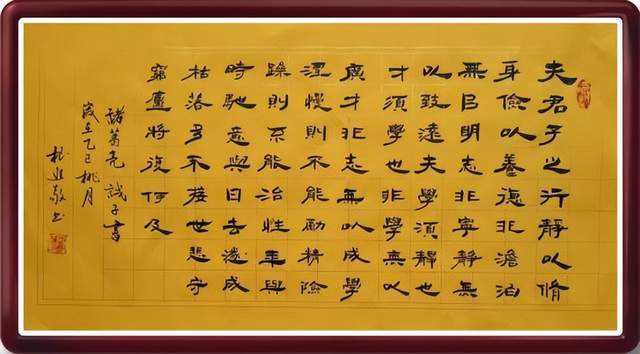 夫君子之行静以脩
身儉以養德非澹泊
無以明志非寧静無
以致遠夫學須静也
才須學也非學無以
廣才非志無以成學
淫慢則不能勵精險
躁則不能治性年與
時馳意與日去遂成
枯落多不接世悲守
窮廬將復何及
諸葛亮誡子書
歲在乙巳桃月
敬書